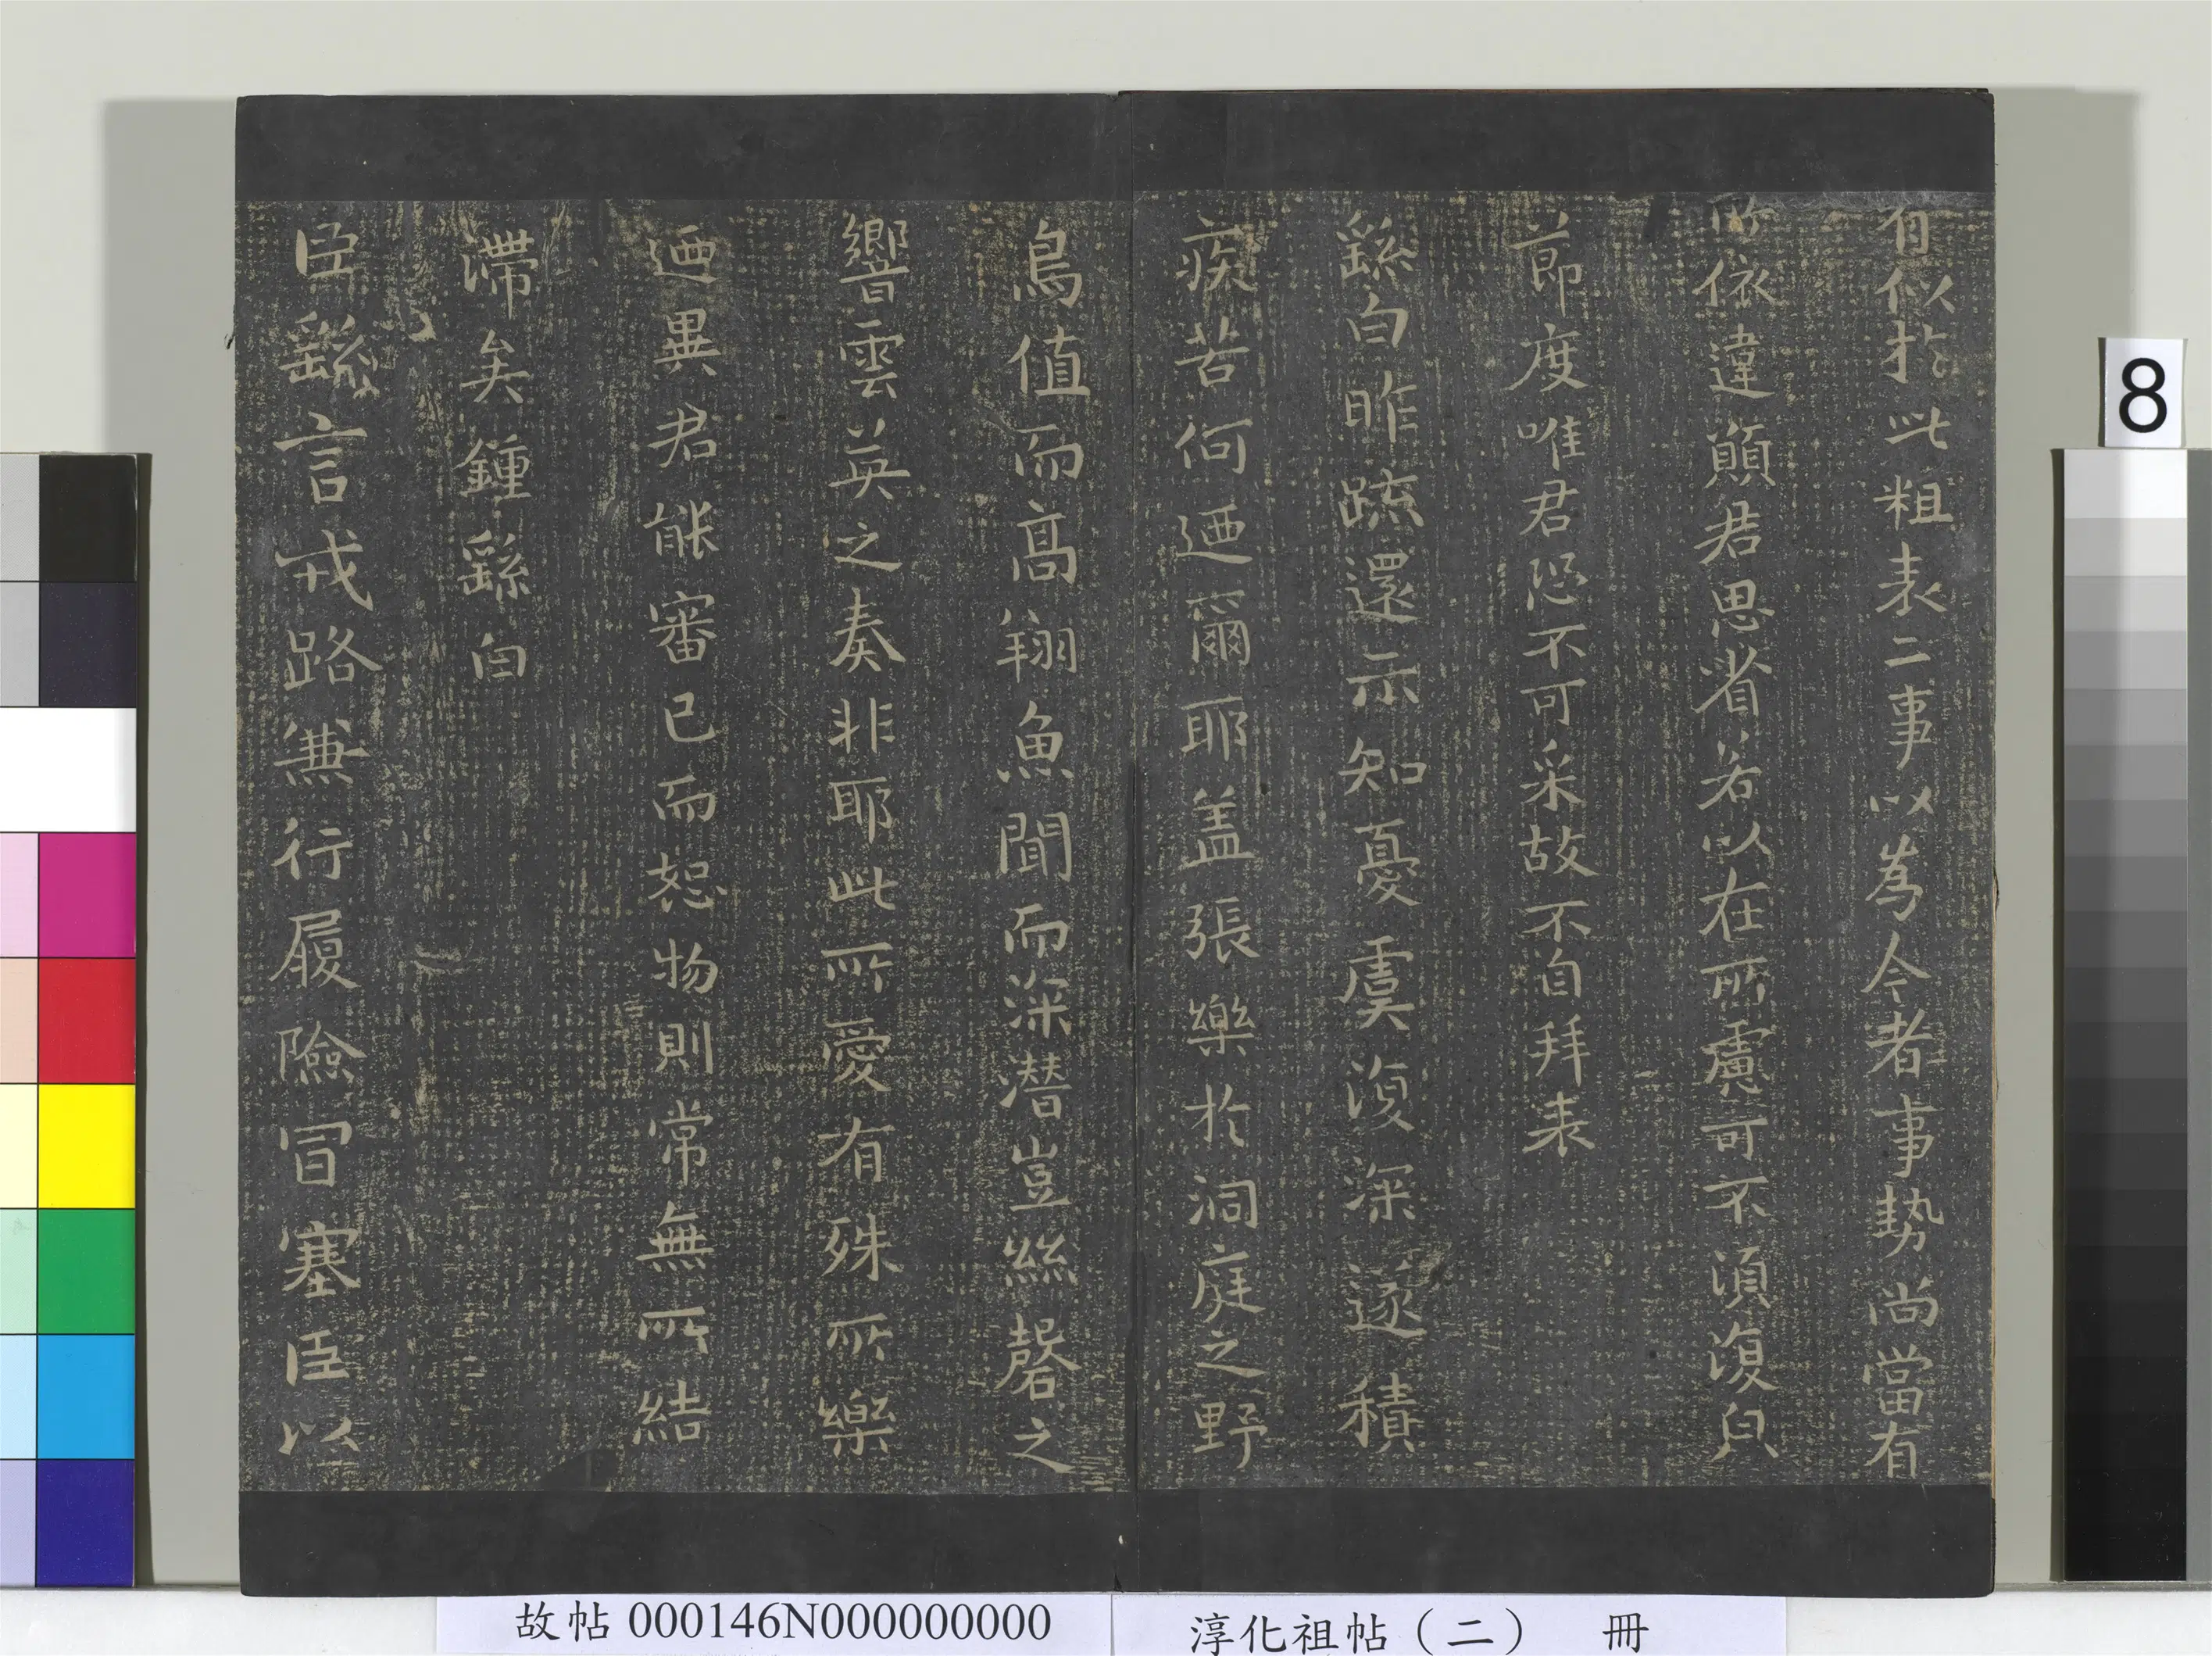 有似於此粗表二事以為今者事勢尚當有
所依違顛君思省若以在所慮可不須復皃
節度唯君恐不可采故不自拜表
繇白昨疏還示知憂虞復深遂積
疾苦何迺爾耶盖張樂於洞庭之野
鳥值而高翔魚聞而深潜豈絲磬之
響雲英之奏非耶此所愛有殊所樂
迺異君能審己而恕物則常無所結
滯矣鍾繇白
臣繇言戎路兼行履險冒塞臣以
8
故帖 000146N000000000
淳化祖帖（二） 冊